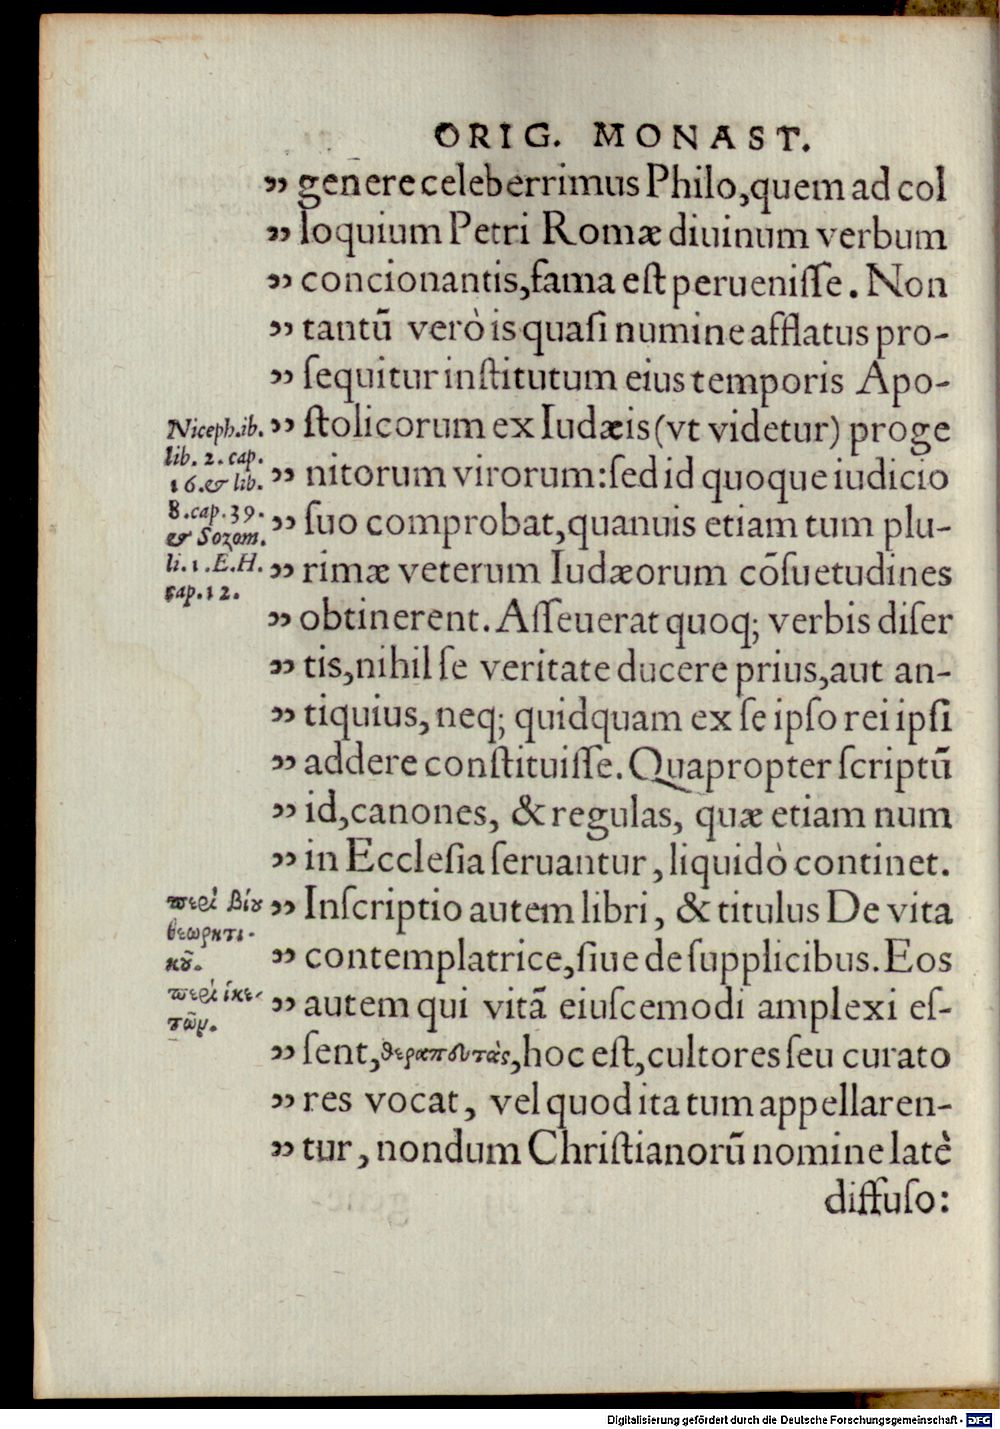 ORIG. MONAST.
” genere celeberrimus Philo, quem ad col
” loquium Petri Romæ diuinum verbum
” concionantis, fama eſt perueniſſe. Non
” tantū verò is quaſi numine afflatus pro-
” ſequitur inſtitutum eius temporis Apo-
” ſtolicorum ex Iudæis (vt videtur) proge
” nitorum virorum: ſed id quoque iudicio
” ſuo comprobat, quanuis etiam tum plu-
” rimæ veterum Iudæorum cōſuetudines
” obtinerent. Aſſeuerat quoq; verbis diſer
” tis, nihil ſe veritate ducere prius, aut an-
” tiquius, neq; quidquam ex ſe ipſo rei ipſi
” addere conſtituiſſe. Quapropter ſcriptū
” id, canones, & regulas, quæ etiam num
” in Eccleſia ſeruantur, liquidò continet.
” Inſcriptio autem libri, & titulus De vita
” contemplatrice, ſiue de ſupplicibus. Eos
” autem qui vitā eiuſcemodi amplexi eſ-
” ſent, θεραπευτὰς, hoc eſt, cultores ſeu curato
” res vocat, vel quod ita tum appellaren-
” tur, nondum Chriſtianorū nomine latè
diffuſo:
Niceph. ib.
lib. 2. cap.
16. & lib.
8. cap. 39.
& Sozom.
li. 1. E. H.
cap. 12.
περὶ βίου
θεωρητι-
κοῦ.
περὶ ἱκε-
τῶν.
Digitalisierung gefördert durch die Deutsche Forschungsgemeinschaft - DFG